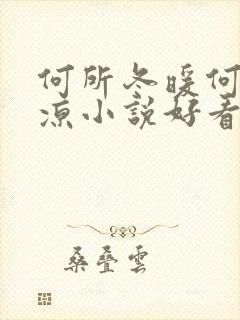 何所冬暖何
凉小說好看
桑叠雲